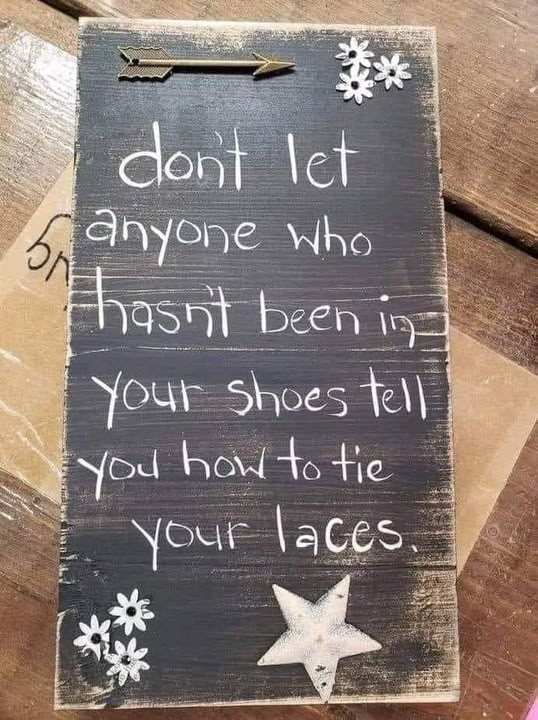 don't let
anyone who
hasn't been in
your shoes tell
you how to tie
your laces.